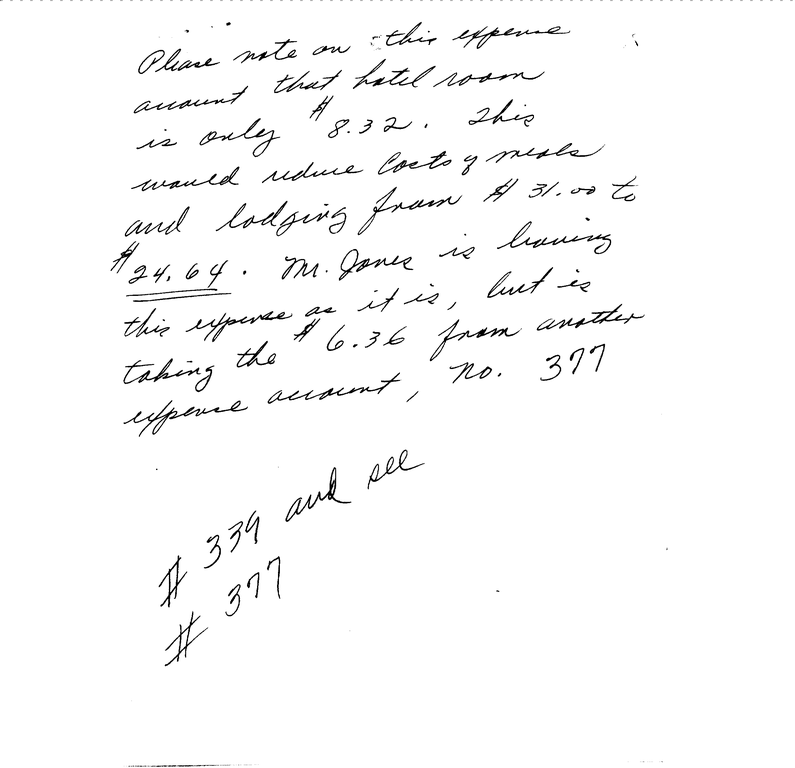 Please note on this expense
account that hotel room
is only $8.32. This
would reduce costs of meals
and lodging from $31.00 to
$24.64. Mr. Jones is leaving
this expense as it is, but is
taking the $6.36 from another
expense account, no. 377
# 339 and see
# 377